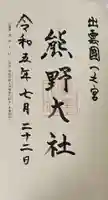 出雲國一之宮
熊野大社
令和五年七月二十二日